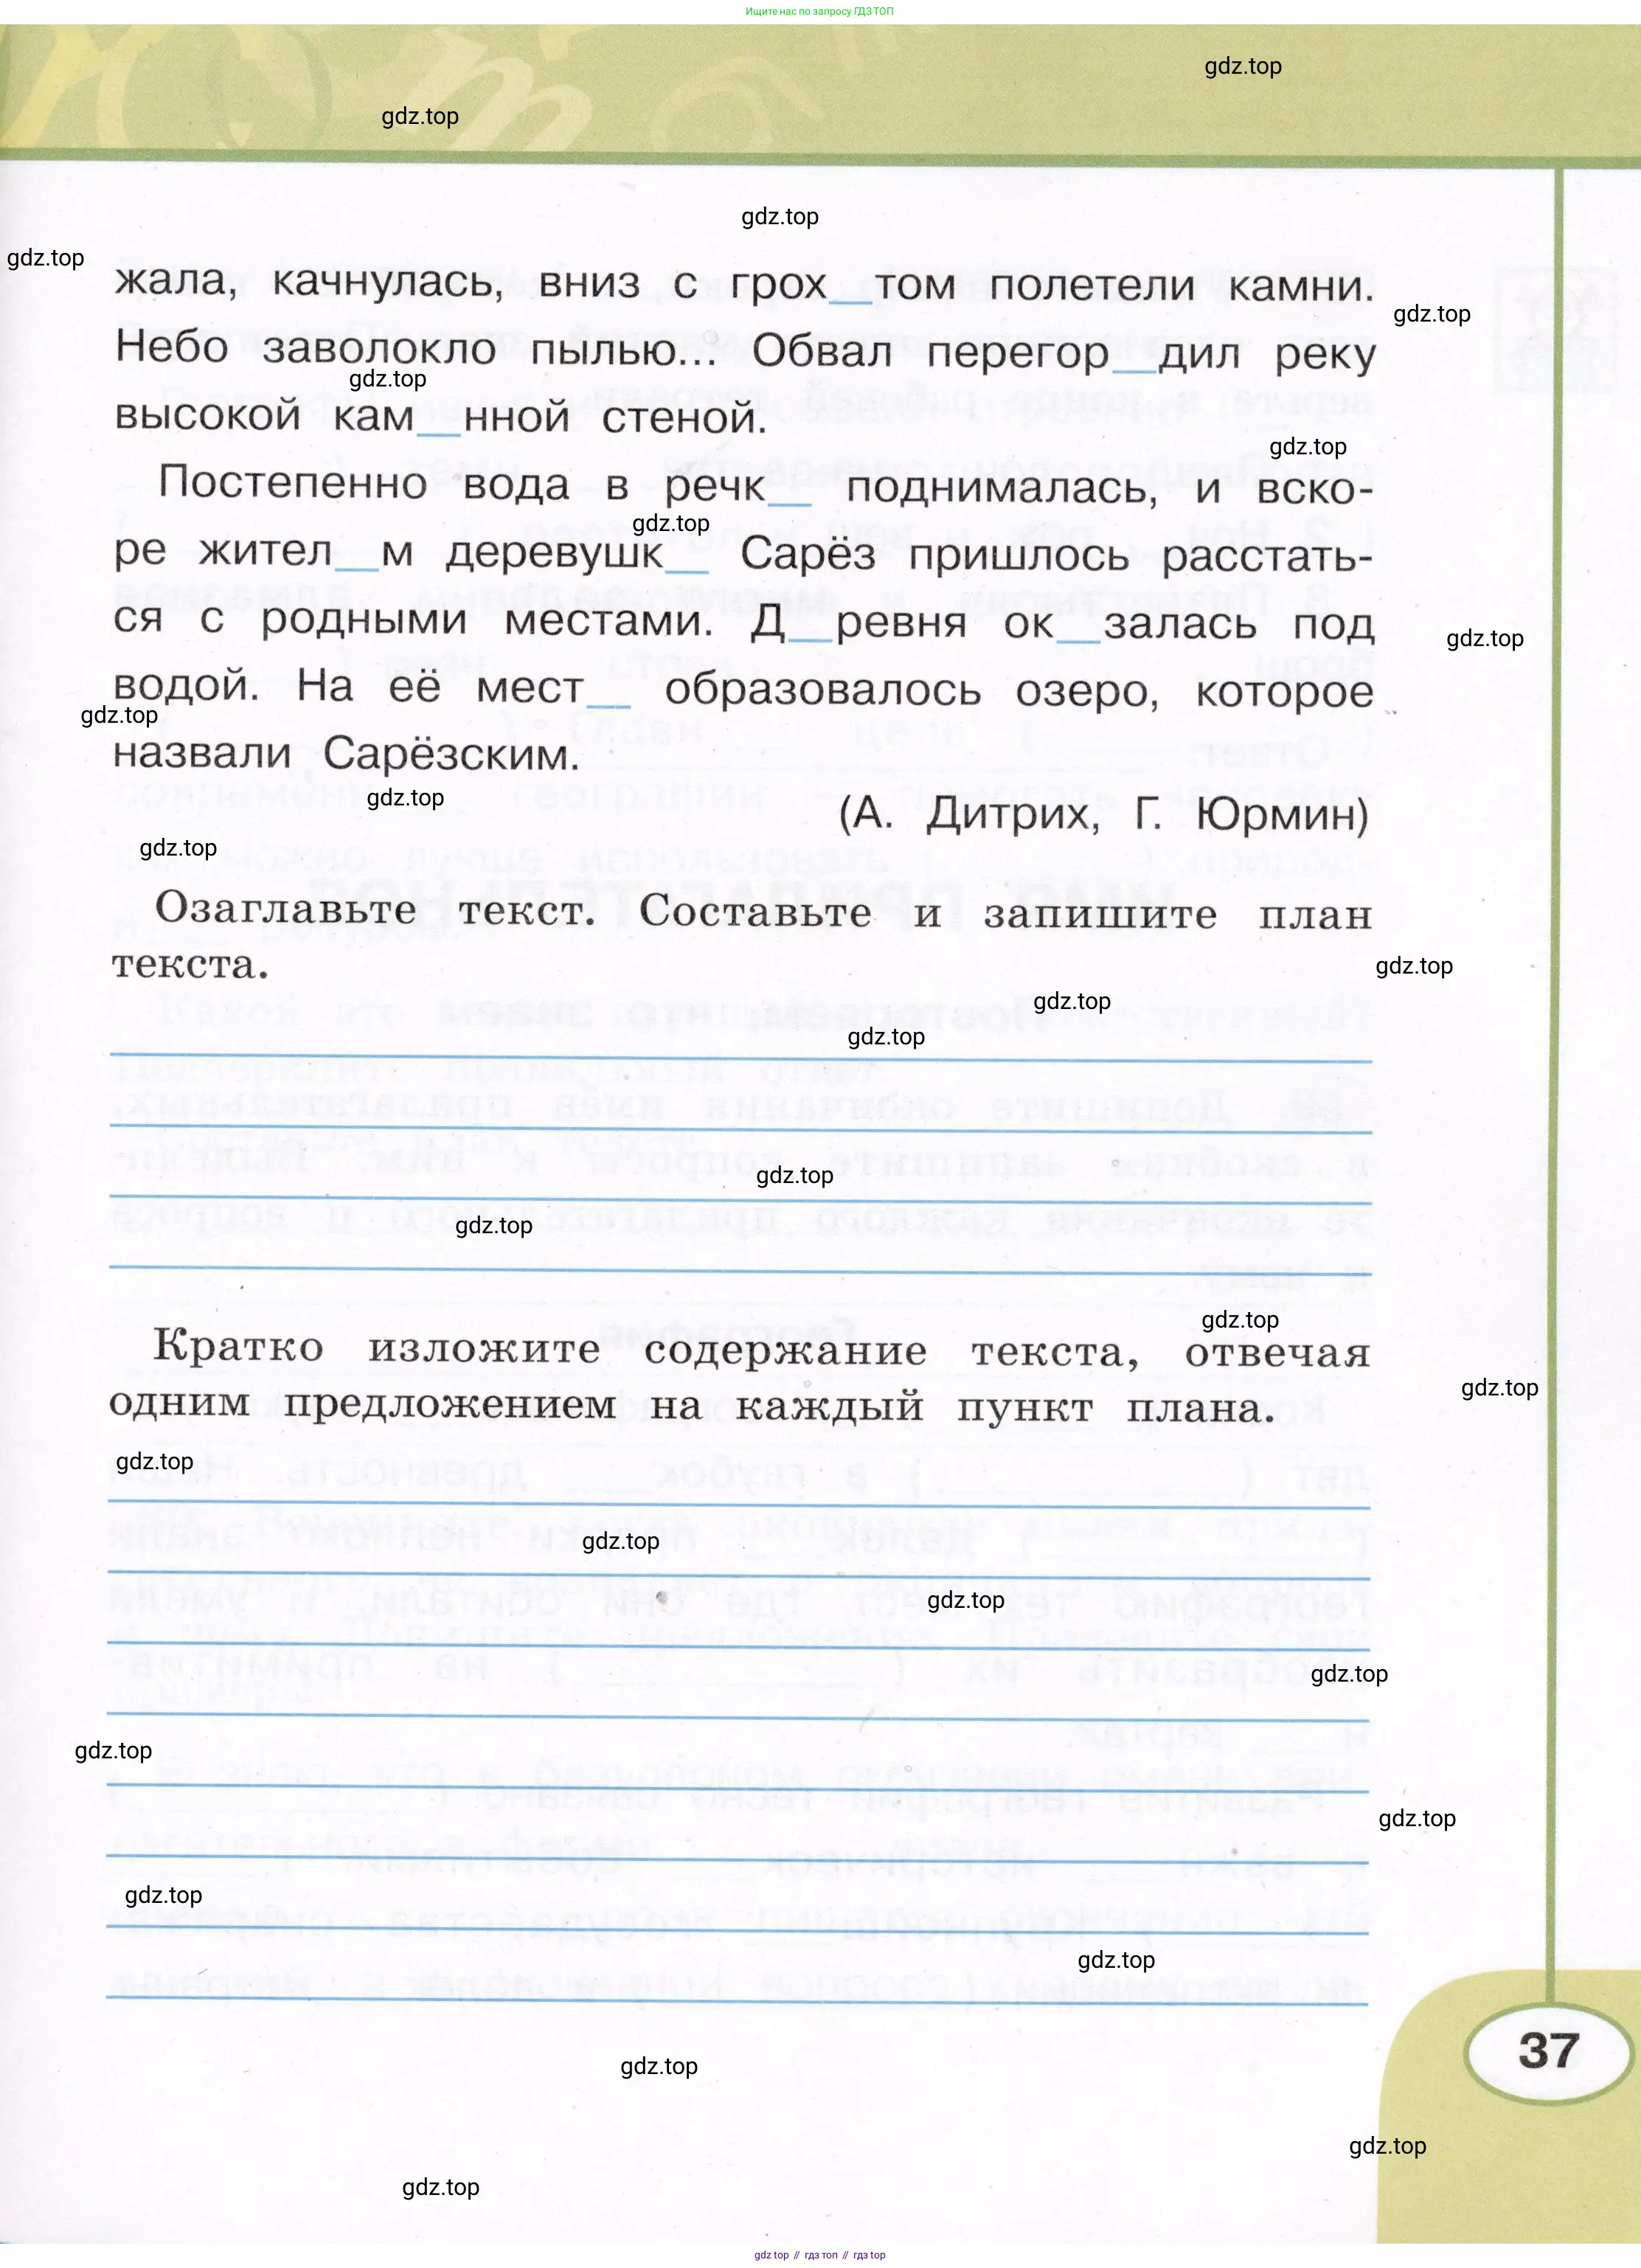 Ищите нас по запросу ГДЗ ТОП
gdz.top
gdz.top
gdz.top
gdz.top
жала, качнулась, вниз с грох__том полетели камни.
gdz.top
Небо заволокло пылью... Обвал перегор__дил реку
gdz.top
высокой кам__нной стеной.
gdz.top
Постепенно вода в речк__ поднималась, и вско-
gdz.top
ре жител__м деревушк__ Сарёз пришлось расстать-
ся с родными местами. Д__ревня ок__залась под
gdz.top
водой. На её мест__ образовалось озеро, которое
gdz.top
назвали Сарёзским.
gdz.top
(А. Дитрих, Г. Юрмин)
gdz.top
Озаглавьте текст. Составьте и запишите план
текста.
gdz.top
gdz.top
gdz.top
gdz.top
gdz.top
gdz.top
Кратко изложите содержание текста, отвечая
gdz.top
одним предложением на каждый пункт плана.
gdz.top
gdz.top
gdz.top
gdz.top
gdz.top
gdz.top
gdz.top
gdz.top
37
gdz.top
gdz.top
gdz.top
gdz top // гдз топ // гдз top